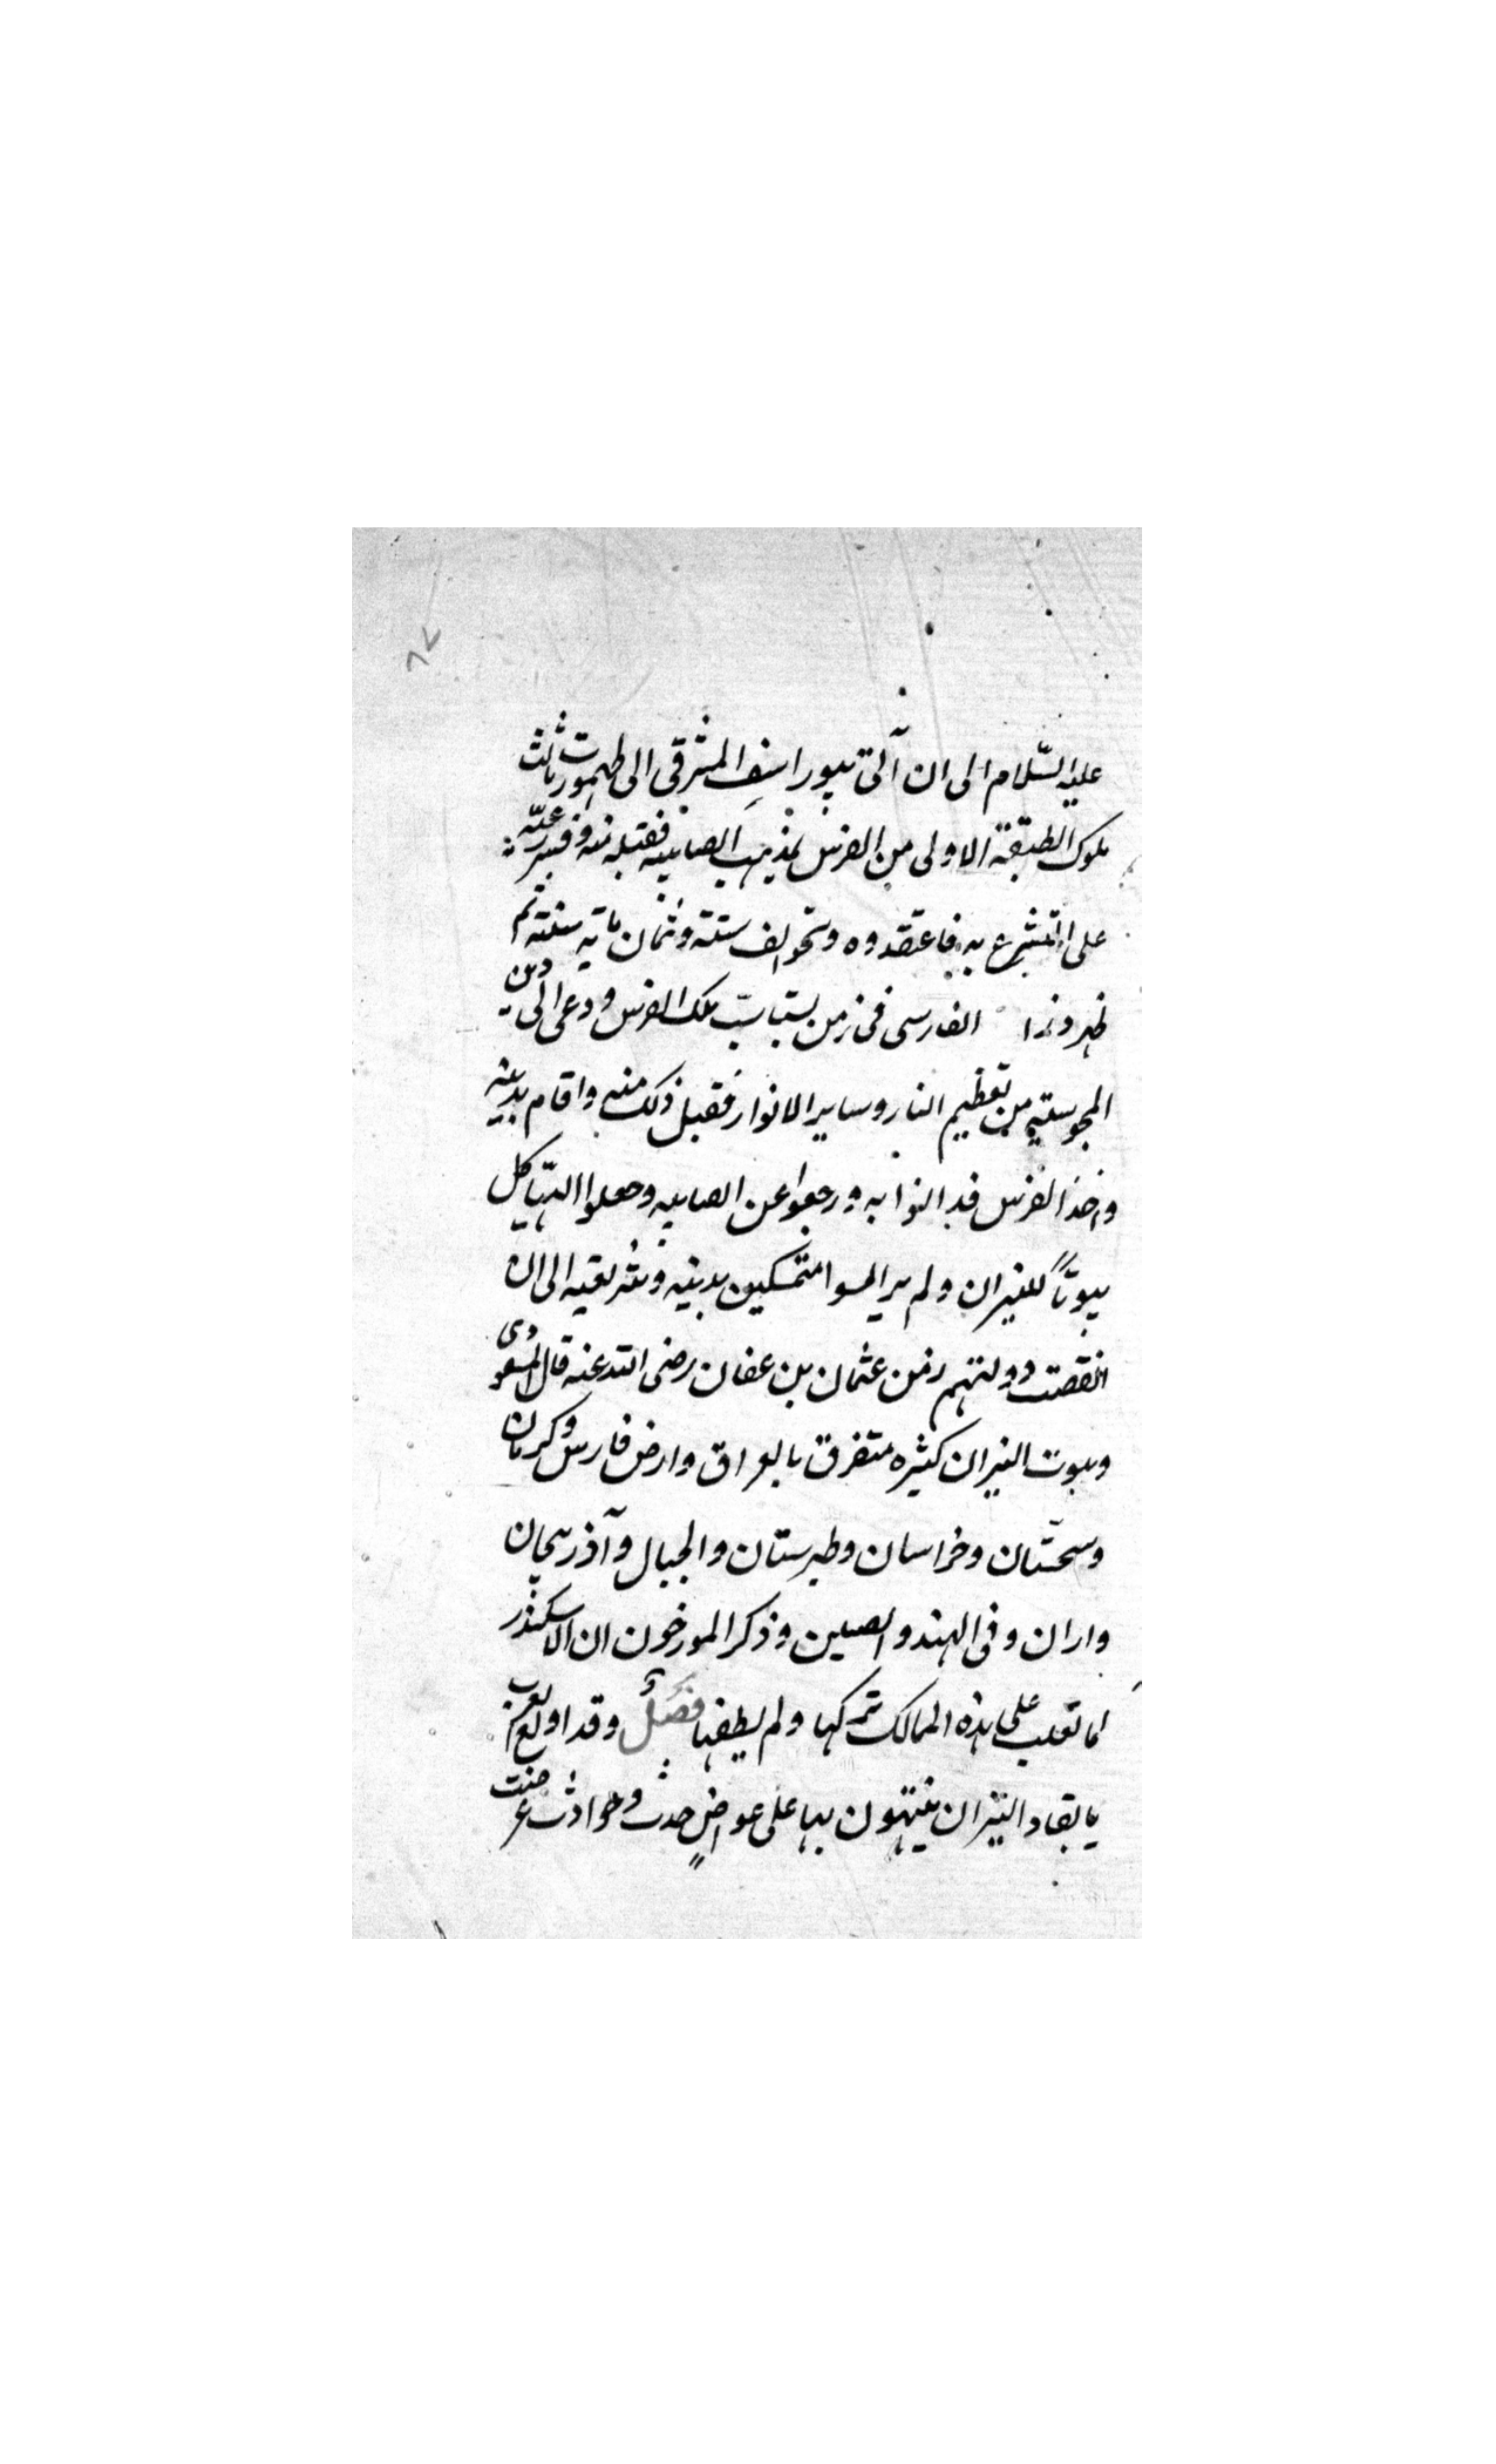 ٨٧
عليه السّلام الى ان آتى بيوراسف المشرقى الى طهمورث ثالث
ملوك الطبقة الاولى من الفرس بمذهب الصابيه فقبله منه وقسر رعيّته
على التشرع به فاعتقدوه ونحو الف سنة وثمان ماية سنة ثم
ظهر الفارسى فى زمن بستاسب ملك الفرس ودعى الى دين
المجوسية من تعظيم النار وساير الانوار فقبل ذلك منه واقام بدينه
واخذ الفرس به ورجعوا عن الصابيه وجعلوا الهياكل
بيوتاً للنيران ولم يزالوا متمسكين بدينه وشريعته الى ان
انقضت دولتهم زمن عثمان بن عفان رضى الله عنه قال المسعودى
وبيوت النيران كثيره متفرق بالعراق وارض فارس وكرمان
وسجستان وخراسان وطبرستان والجبال وآذربيجان
واران وفى الهند والصين وذكر المورخون ان الاسكندر
لما تغلب على هذه الممالك تركها ولم يطفها فصل وقد اولع العرب
بايقاد النيران ينبهون بها على عوارضٍ حدثت وحوادث عرضت